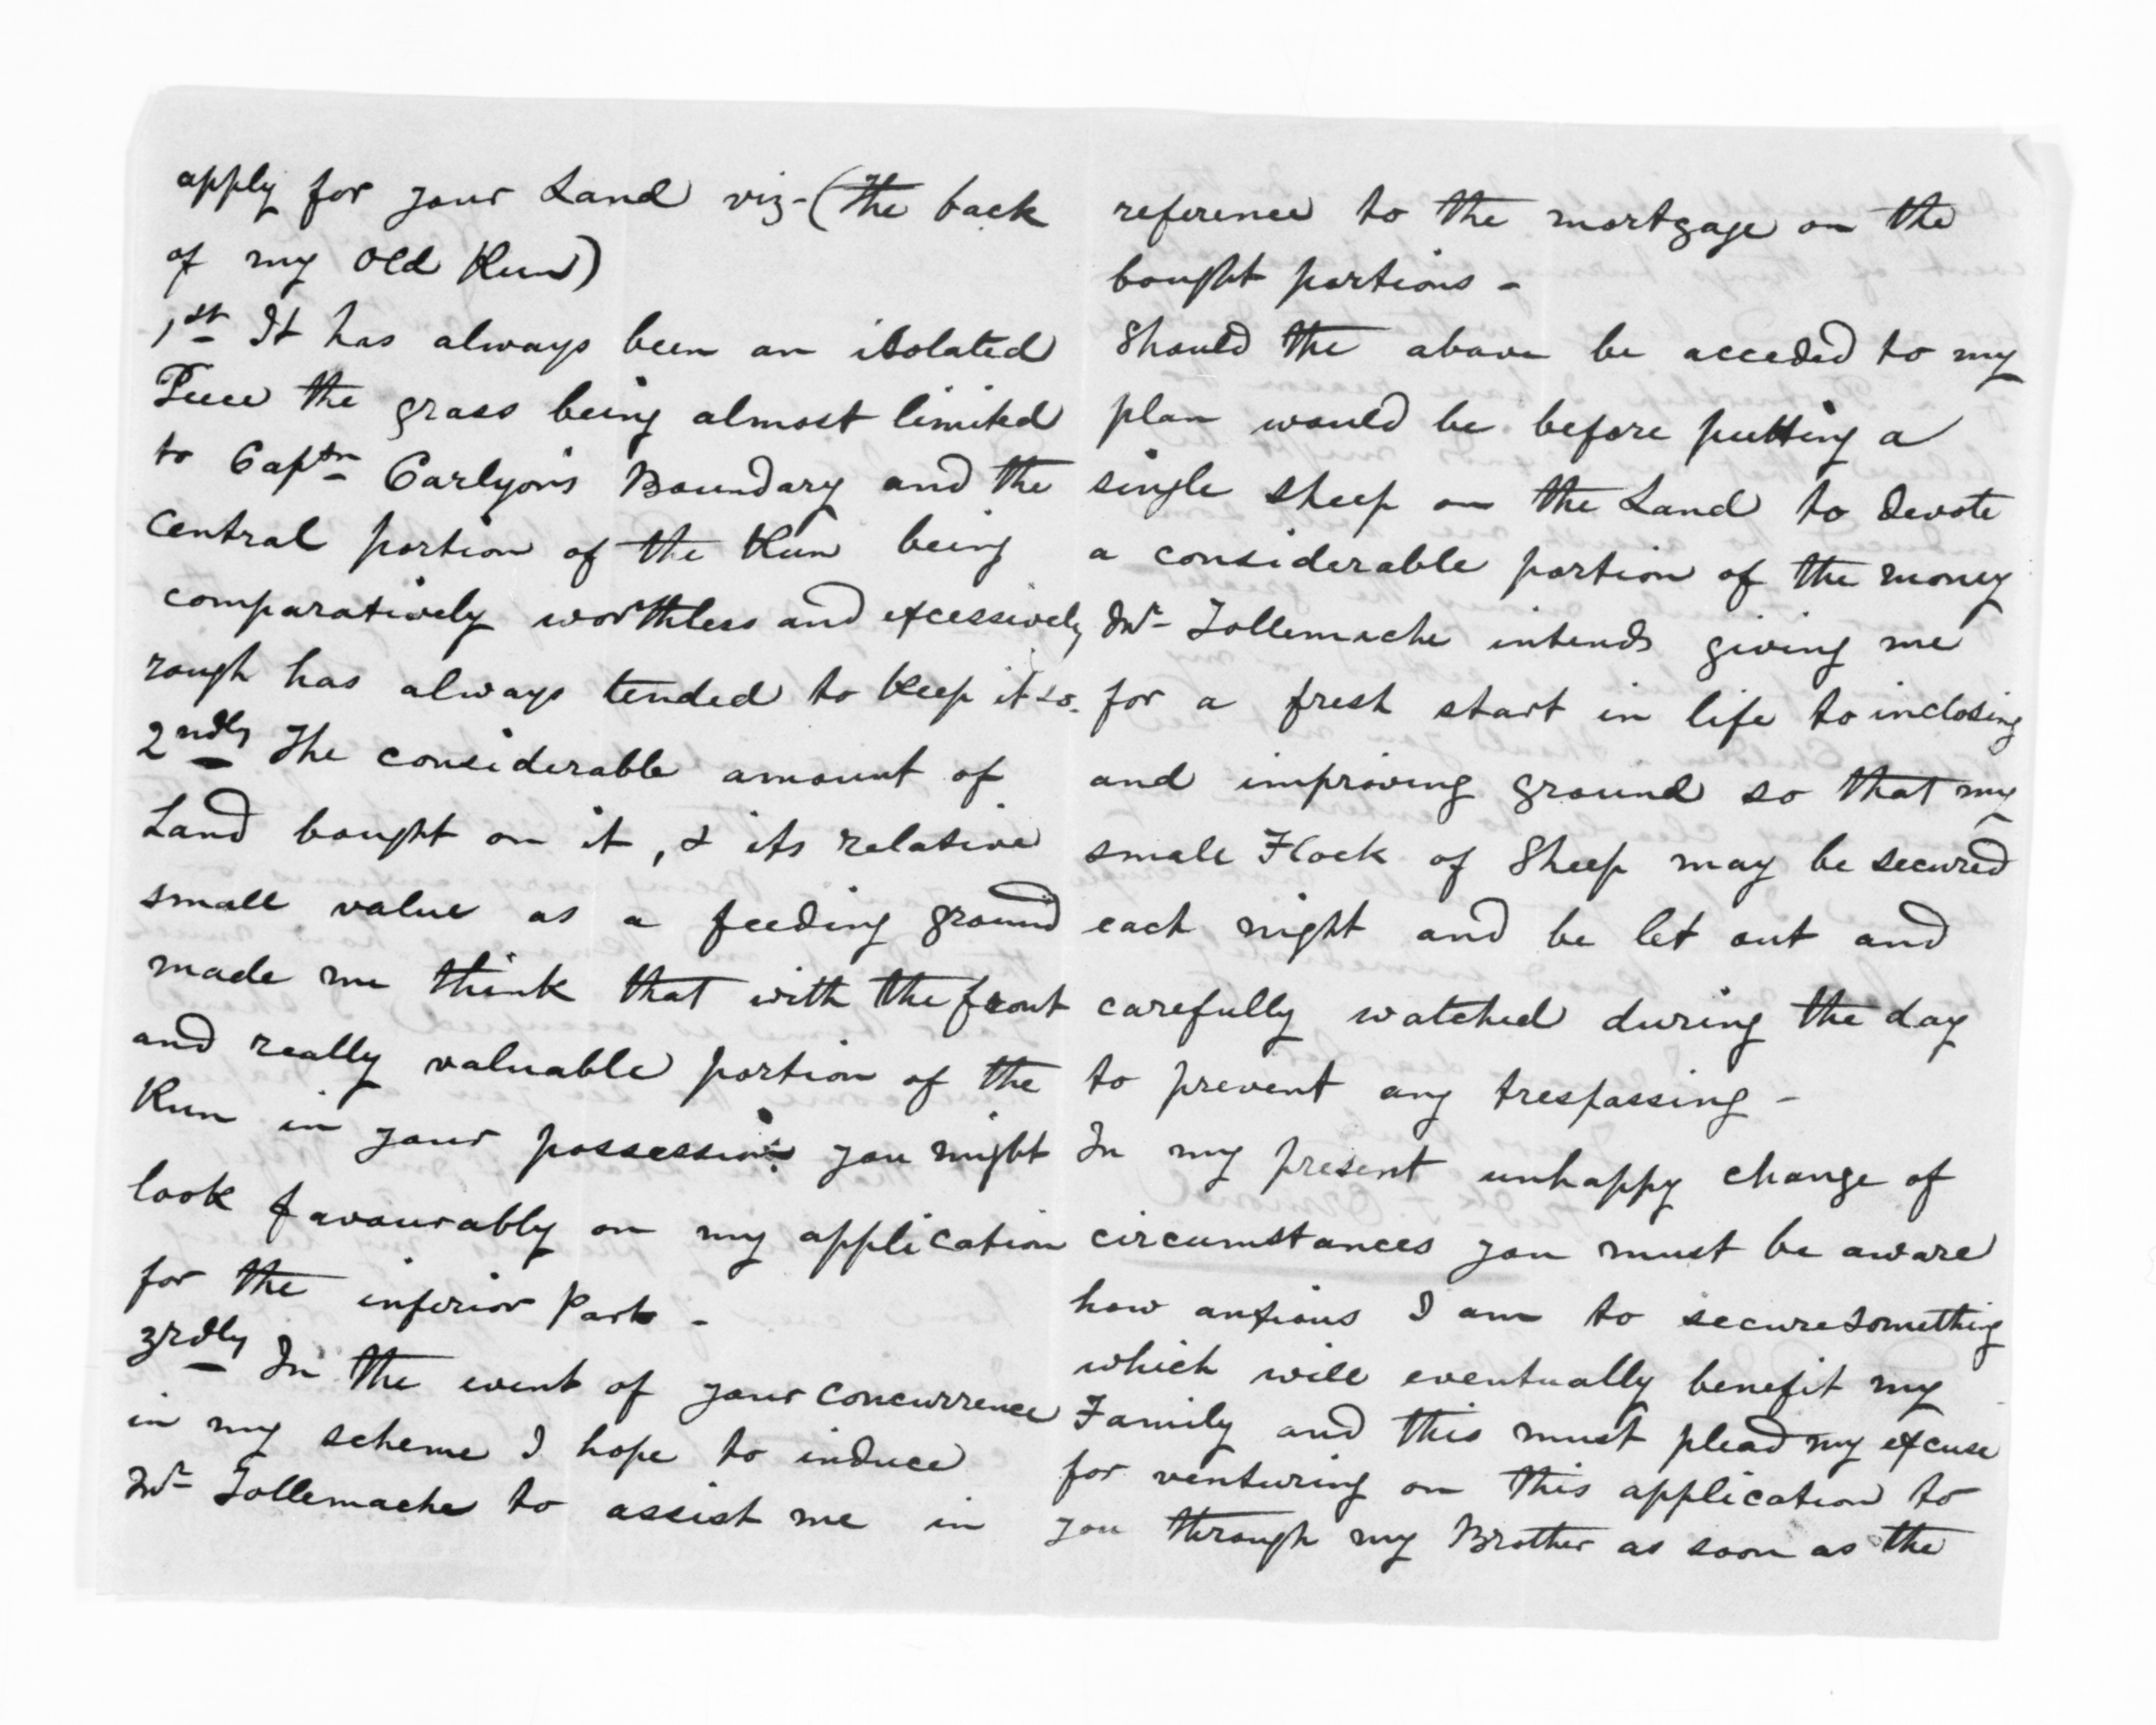 apply for your Land viz-(the back
of my Old Run)
1st It has always been an isolated
Piece the grass being almost limited
to Captn Carlyon's Boundary and the
Central portion of the Run being
comparatively worthless and excessively
rough has always tended to keep it so.
2ndly The considerable amount of
Land bought on it, & its relative
small value as a feeding ground
made me think that with the front
and really valuable portion of the
Run in your possession you might
look favourably on my application
for the inferior Part -
3rdly In the event of your concurrence
in my scheme I hope to induce
Mr Tollemache to assist me in
reference to the mortgage on the
bought portions -
Should the above be acceded to my
plan would be before putting a
single sheep on the Land to devote
a considerable portion of the money
Mr Tollemache intends giving me
for a fresh start in life to inclosing
and improving ground so that my
small Flock of Sheep may be secured
each night and be let out and
carefully watched during the day
to prevent any trespassing -
In my present unhappy change of
circumstances you must be aware
how anxious I am to secure something
which will eventually benefit my
Family and this must plead my excuse
for venturing on this application to
you through my Brother as soon as the